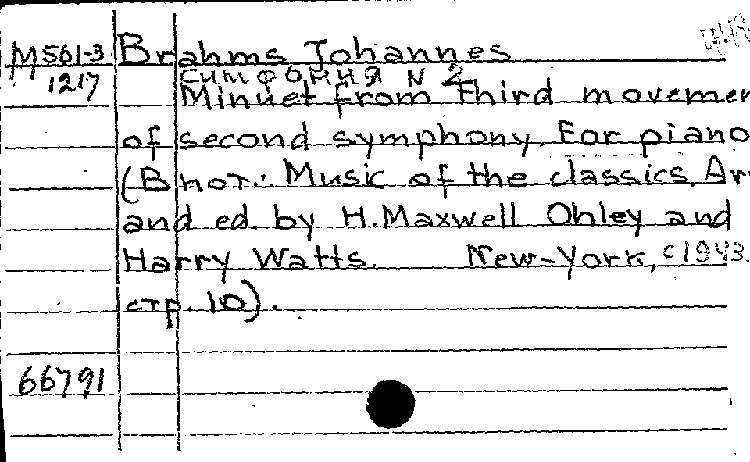 M561-3 Brahms Johannes
1217 симфония N 2
Minuet from third movemen
of second symphony. For piano
(В нот.: Music of the classics. Ar
and ed. by H. Maxwell Ohley and
Harry Watts. New-York, c1943.
стр. 10).
66791